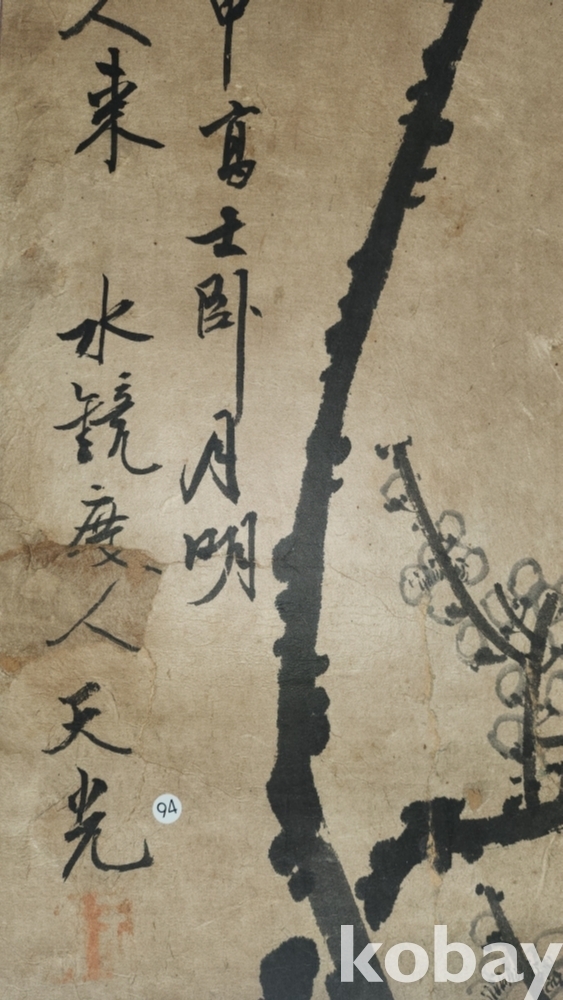 中高士臥月明
人來
水鏡度人天光
94
kobay